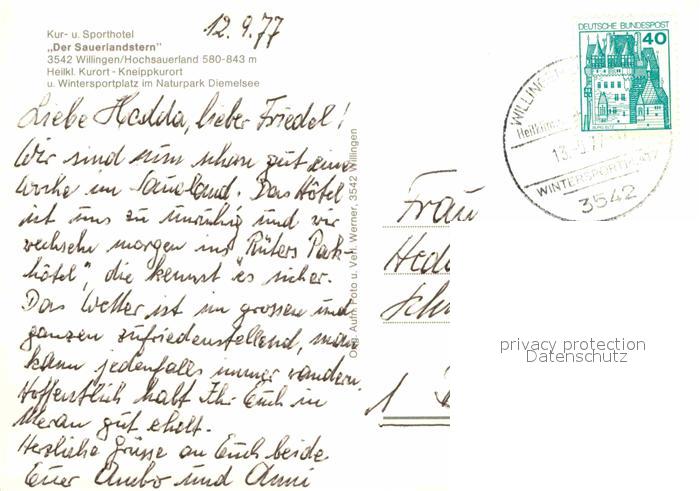 12.9.77
Kur- u. Sporthotel
„Der Sauerlandstern"
3542 Willingen/Hochsauerland 580-843 m
Heilkl. Kurort - Kneippkurort
u. Wintersportplatz im Naturpark Diemelsee
Liebe Hedda, lieber Friedel!
Wir sind nun schon gut eine
Woche im Sauerland. Das Hotel
ist uns zu unruhig und wir
wechseln morgen ins "Rüters Park-
hotel", die kennst es sicher.
Das Wetter ist im grossen und
ganzen zufriedenstellend, man
kann jedenfalls immer wandern.
Hoffentlich habt Ihr Euch in
Meran gut erholt.
Herzliche Grüsse an Euch beide
Euer und Anni
Orig. Aufn. Foto u. Verl. Werner, 3542 Willingen
DEUTSCHE BUNDESPOST
40
WILLINGEN
13.
WINTERSPORTPLATZ
3542
Frau
Hedd
Sch
1
privacy protection
Datenschutz